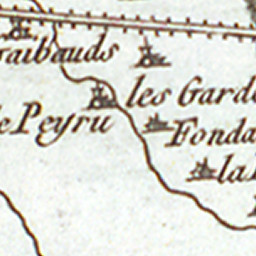 aibauds
les Gard
e Peyru
Fonda
la